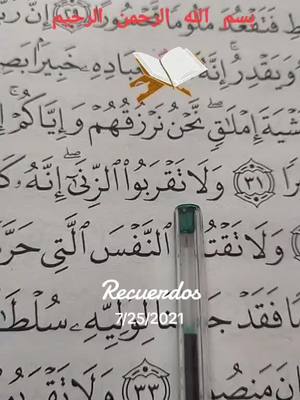 بسم الله الرحمن الرحيم
فَتَقْعُدَ مَلُومًا مَّحْسُورًا ٢٩ إِنَّ
وَيَقْدِرُ إِنَّهُۥ بِعِبَادِهِۦ خَبِيرًا
إِمْلَٰقٍ ۖ نَّحْنُ نَرْزُقُهُمْ وَإِيَّاكُمْ ۚ
٣١ وَلَا تَقْرَبُوا۟ ٱلزِّنَىٰٓ ۖ إِنَّهُۥ
وَلَا ٱلنَّفْسَ ٱلَّتِى
Recuerdos
فَقَدْ
7/25/2021
٣٣ وَلَا